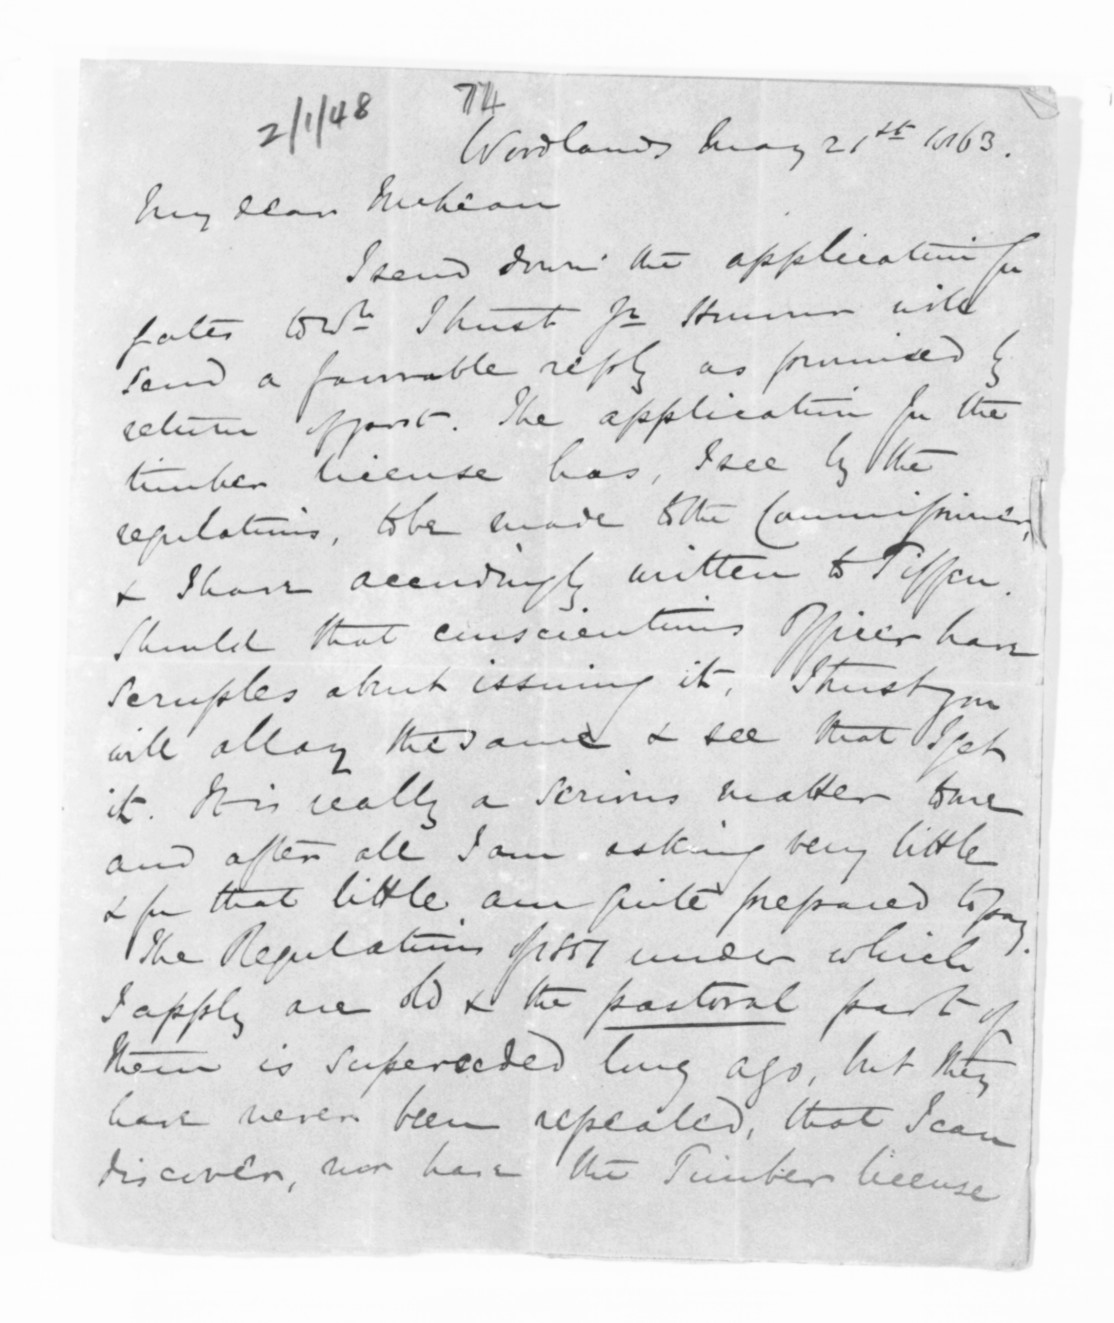 2/1/48
74
Woodlands May 21st 1863.
My dear McLean
I send down the application for
gates to wh I trust yr Honour will
send a favorable reply as promised by
return of post. The application for the
timber license has, I see by the
regulations, to be made to the Commissioner,
& I have accordingly written to Tiffen.
Should that conscientious Officer have
scruples about issuing it, I trust you
will allay the same & see that I get
it. It is really a serious matter to me
and after all I am asking very little
& for that little am quite prepared to pay.
The Regulations of 1851 under which
I apply are old & the pastoral part of
them is superseded long ago, but they
have never been repealed, that I can
discover, nor have the Timber license